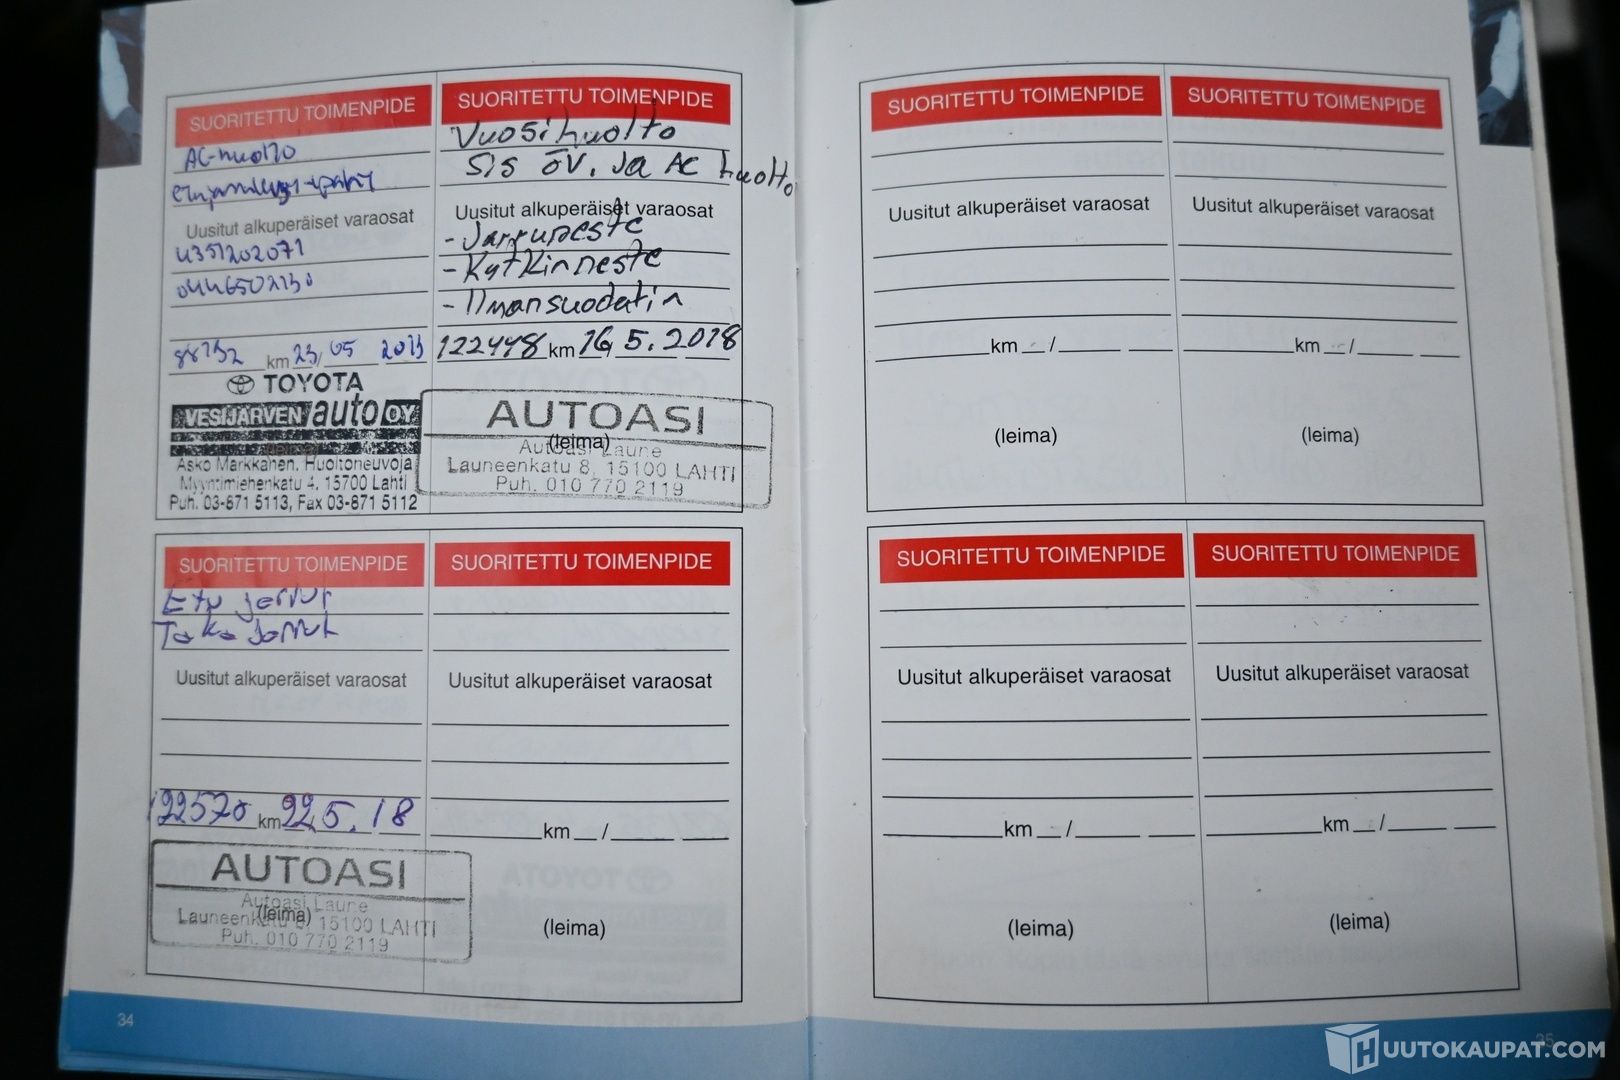 SUORITETTU TOIMENPIDE
AC-huolto
Uusitut alkuperäiset varaosat
4351202071
0446502130
88132 km 23/05 2013
TOYOTA
VESIJÄRVEN auto OY
Asko Markkanen, Huoltoneuvoja
Myyntimiehenkatu 4, 15700 Lahti
Puh. 03-871 5113, Fax 03-871 5112
SUORITETTU TOIMENPIDE
Vuosihuolto
SIS ÖV. Ja AC huolto
Uusitut alkuperäiset varaosat
- Jarruneste
- Kytkinneste
- Ilmansuodatin
122448 km 16.5.2018
AUTOASI
(leima)
Autoasi Laune
Launeenkatu 8, 15100 LAHTI
Puh. 010 770 2119
SUORITETTU TOIMENPIDE
Etu jarrut
Taka jarrut
Uusitut alkuperäiset varaosat
122570 km 22.5.18
AUTOASI
Autoasi Laune
(leima)
Launeenkatu 8, 15100 LAHTI
Puh. 010 770 2119
SUORITETTU TOIMENPIDE
Uusitut alkuperäiset varaosat
km /
(leima)
34
SUORITETTU TOIMENPIDE
Uusitut alkuperäiset varaosat
km /
(leima)
SUORITETTU TOIMENPIDE
Uusitut alkuperäiset varaosat
km /
(leima)
SUORITETTU TOIMENPIDE
Uusitut alkuperäiset varaosat
km /
(leima)
SUORITETTU TOIMENPIDE
Uusitut alkuperäiset varaosat
km /
(leima)
35
HUUTOKAUPAT.COM